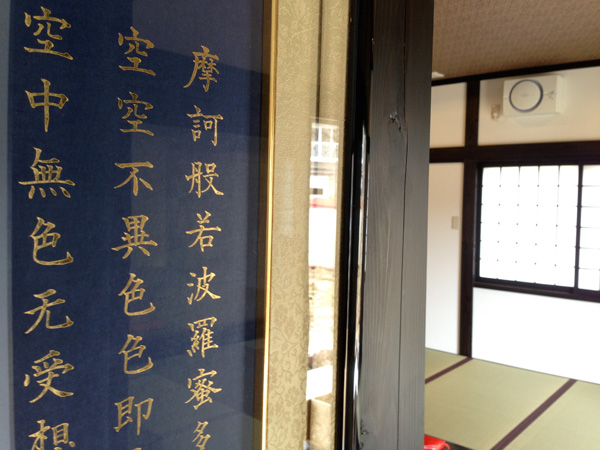 摩訶般若波羅蜜多
空空不異色色即
空中無色无受想